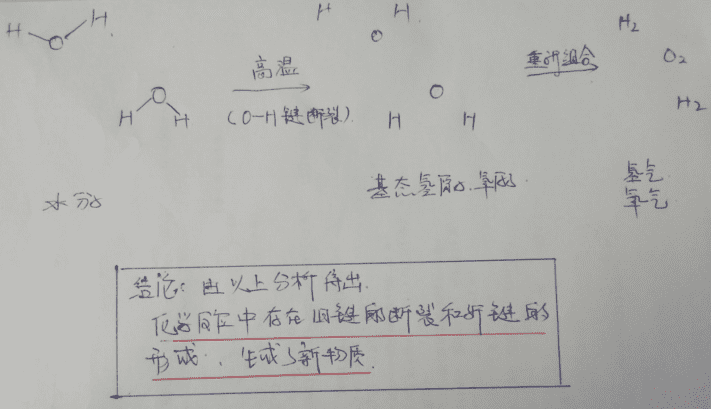 H O H
H O H
高温
(O-H键断裂)
H H
O
O
H H
重新组合
H2
O2
H2
水分子
基态氢原子、氧原子
氢气
氧气
结论:由以上分析得出
化学反应中存在旧键的断裂和新键的
形成,生成了新物质.